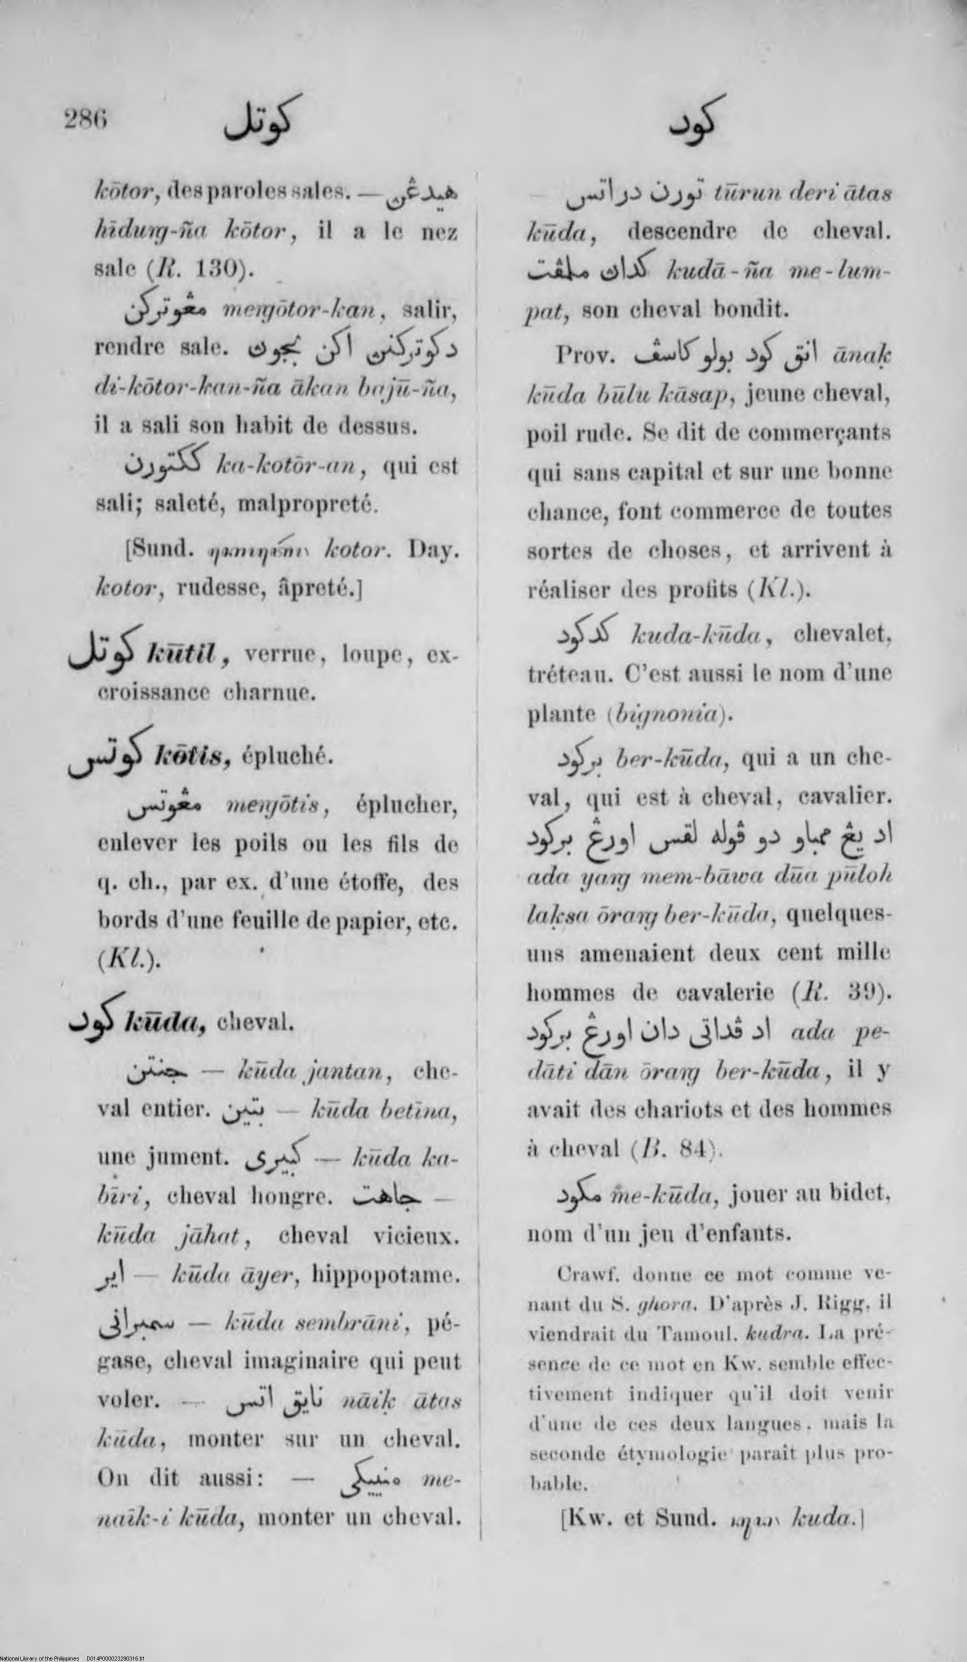 286
كوتل
كود
kōtor, des paroles sales. — هيدڠن
hīduṅg-ña kōtor, il a le nez
sale (R. 130).
مڠوتركن meṅgōtor-kan, salir,
rendre sale. دكوتركنن اكن بجون
di-kōtor-kan-ña ākan bajū-ña,
il a sali son habit de dessus.
ككتورن ka-kotōr-an, qui est
sali; saleté, malpropreté.
[Sund. kotor. Day.
kotor, rudesse, âpreté.]
كوتل kūtil, verrue, loupe, ex-
croissance charnue.
كوتس kōtis, épluché.
مڠوتس meṅgōtis, éplucher,
enlever les poils ou les fils de
q. ch., par ex. d'une étoffe, des
bords d'une feuille de papier, etc.
(Kl.).
كود kūda, cheval.
جنتن — kūda jantan, che-
val entier. بتين — kūda betīna,
une jument. كبيرى — kūda ka-
bīri, cheval hongre. جاهت —
kūda jāhat, cheval vicieux.
اير — kūda āyer, hippopotame.
سمبرانى — kūda sembrāni, pé-
gase, cheval imaginaire qui peut
voler. — نايق اتس nāiḳ ātas
kūda, monter sur un cheval.
On dit aussi: — منييكى me-
naīk-i kūda, monter un cheval.
تورن دراتس tūrun deri ātas
kūda, descendre de cheval.
كدان ملمڤت kudā-ña me-lum-
pat, son cheval bondit.
Prov. انق كود بولو كاسڤ ānaḳ
kūda būlu kāsap, jeune cheval,
poil rude. Se dit de commerçants
qui sans capital et sur une bonne
chance, font commerce de toutes
sortes de choses, et arrivent à
réaliser des profits (Kl.).
كدكود kuda-kūda, chevalet,
tréteau. C'est aussi le nom d'une
plante (bignonia).
بركود ber-kūda, qui a un che-
val, qui est à cheval, cavalier.
اد يڠ ممباو دو ڤوله لقس اورڠ بركود
ada yaṅg mem-bāwa dūa pūloh
laḳsa ōraṅg ber-kūda, quelques-
uns amenaient deux cent mille
hommes de cavalerie (R. 39).
اد ڤداتى دان اورڠ بركود ada pe-
dāti dān ōraṅg ber-kūda, il y
avait des chariots et des hommes
à cheval (R. 84).
مكود me-kūda, jouer au bidet,
nom d'un jeu d'enfants.
Crawf. donne ce mot comme ve-
nant du S. ghora. D'après J. Rigg, il
viendrait du Tamoul. kudra. La pré-
sence de ce mot en Kw. semble effec-
tivement indiquer qu'il doit venir
d'une de ces deux langues, mais la
seconde étymologie parait plus pro-
bable.
[Kw. et Sund. kuda.]
National Library of the Philippines